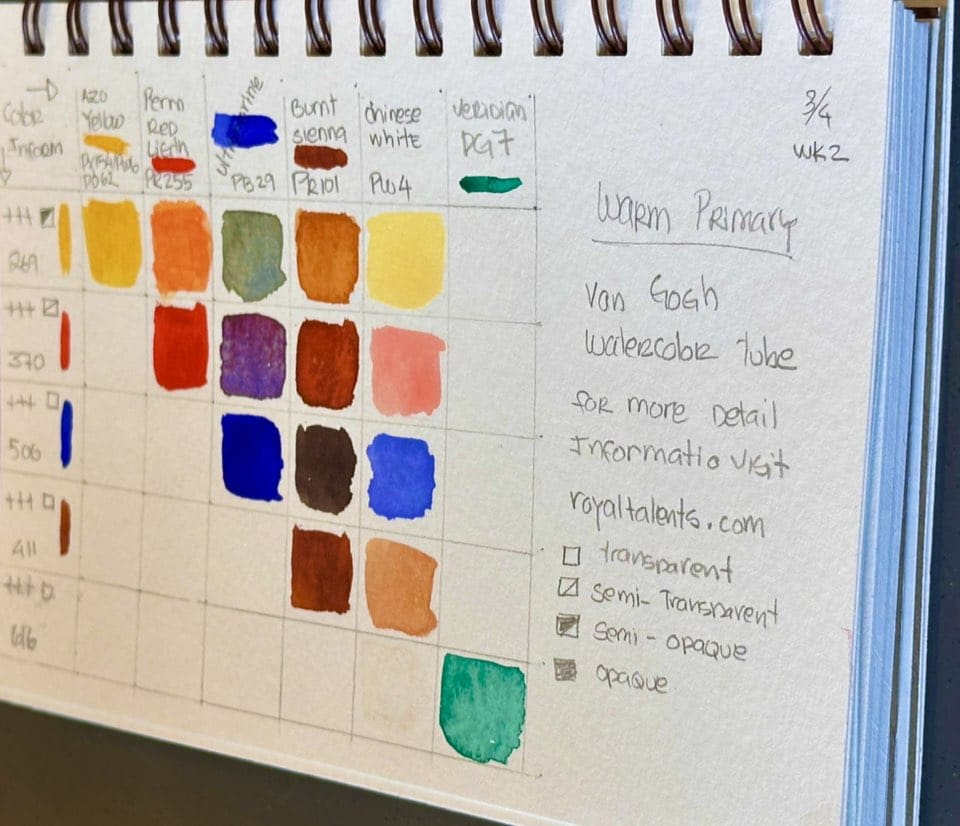 Color
Inform
Azo
Yellow
PO62
Perm
Red
Ligth
PR255
Ultramarine
PB29
Burnt
sienna
PR101
chinese
white
PW4
Veridian
PG7
3/4
WK2
+++
269
+++
370
+++
506
+++
411
+++
616
Warm Primary
Van Gogh
Watercolor tube
for more Detail
Informatio Visit
royaltalents.com
transparent
semi-Transparent
semi-opaque
opaque